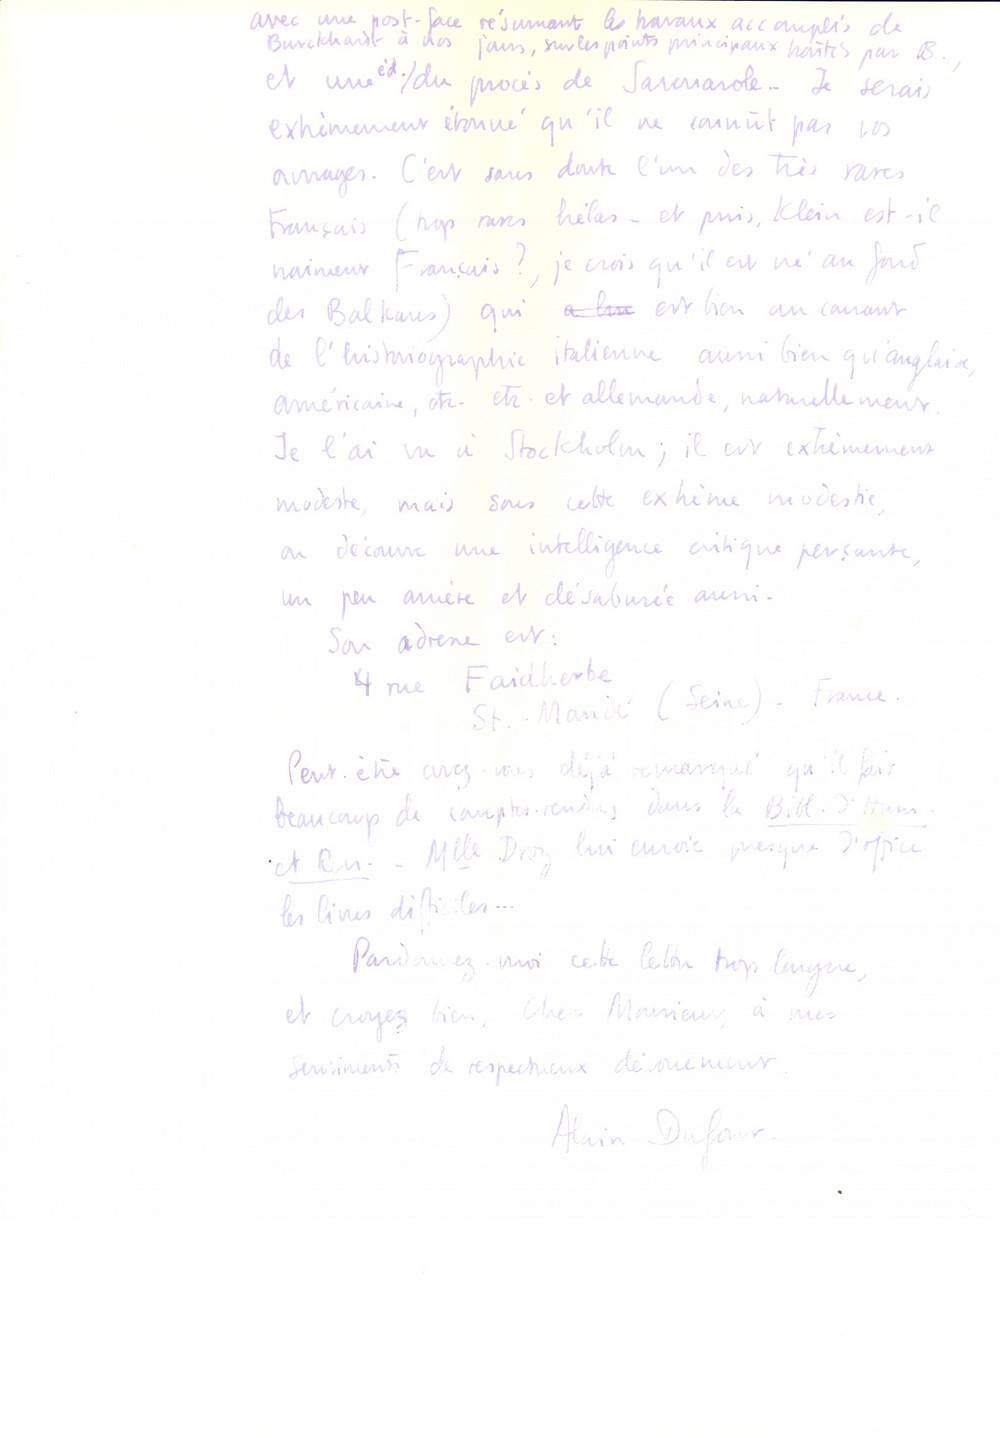 avec une post-face résumant les travaux accomplis de
Burckhardt à nos jours, sur les points principaux traités par B.,
et une éd./du procès de Savonarole - Je serais
extrêmement étonné qu'il ne connût pas vos
ouvrages. C'est sans doute l'un des très rares
Français (trop rares hélas - et puis, Klein est-il
vraiment Français ?, je crois qu'il est né au fond
des Balkans) qui a lu est bien au courant
de l'historiographie italienne aussi bien qu'anglaise,
américaine, etc. etc. et allemande, naturellement.
Je l'ai vu à Stockholm ; il est extrêmement
modeste, mais sous cette extrême modestie,
on découvre une intelligence critique perçante,
un peu amère et désabusée aussi.
Son adresse est :
4 rue Faidherbe
St. Mandé (Seine) - France.
Peut-être avez-vous déjà remarqué qu'il fait
beaucoup de comptes-rendus dans la Bibl. d'Hum.
et Ren. - Mlle Droz lui envoie presque d'office
les livres difficiles...
Pardonnez-moi cette lettre trop longue,
et croyez bien, Cher Monsieur, à mes
sentiments de respectueux dévouement.
Alain Dufour.